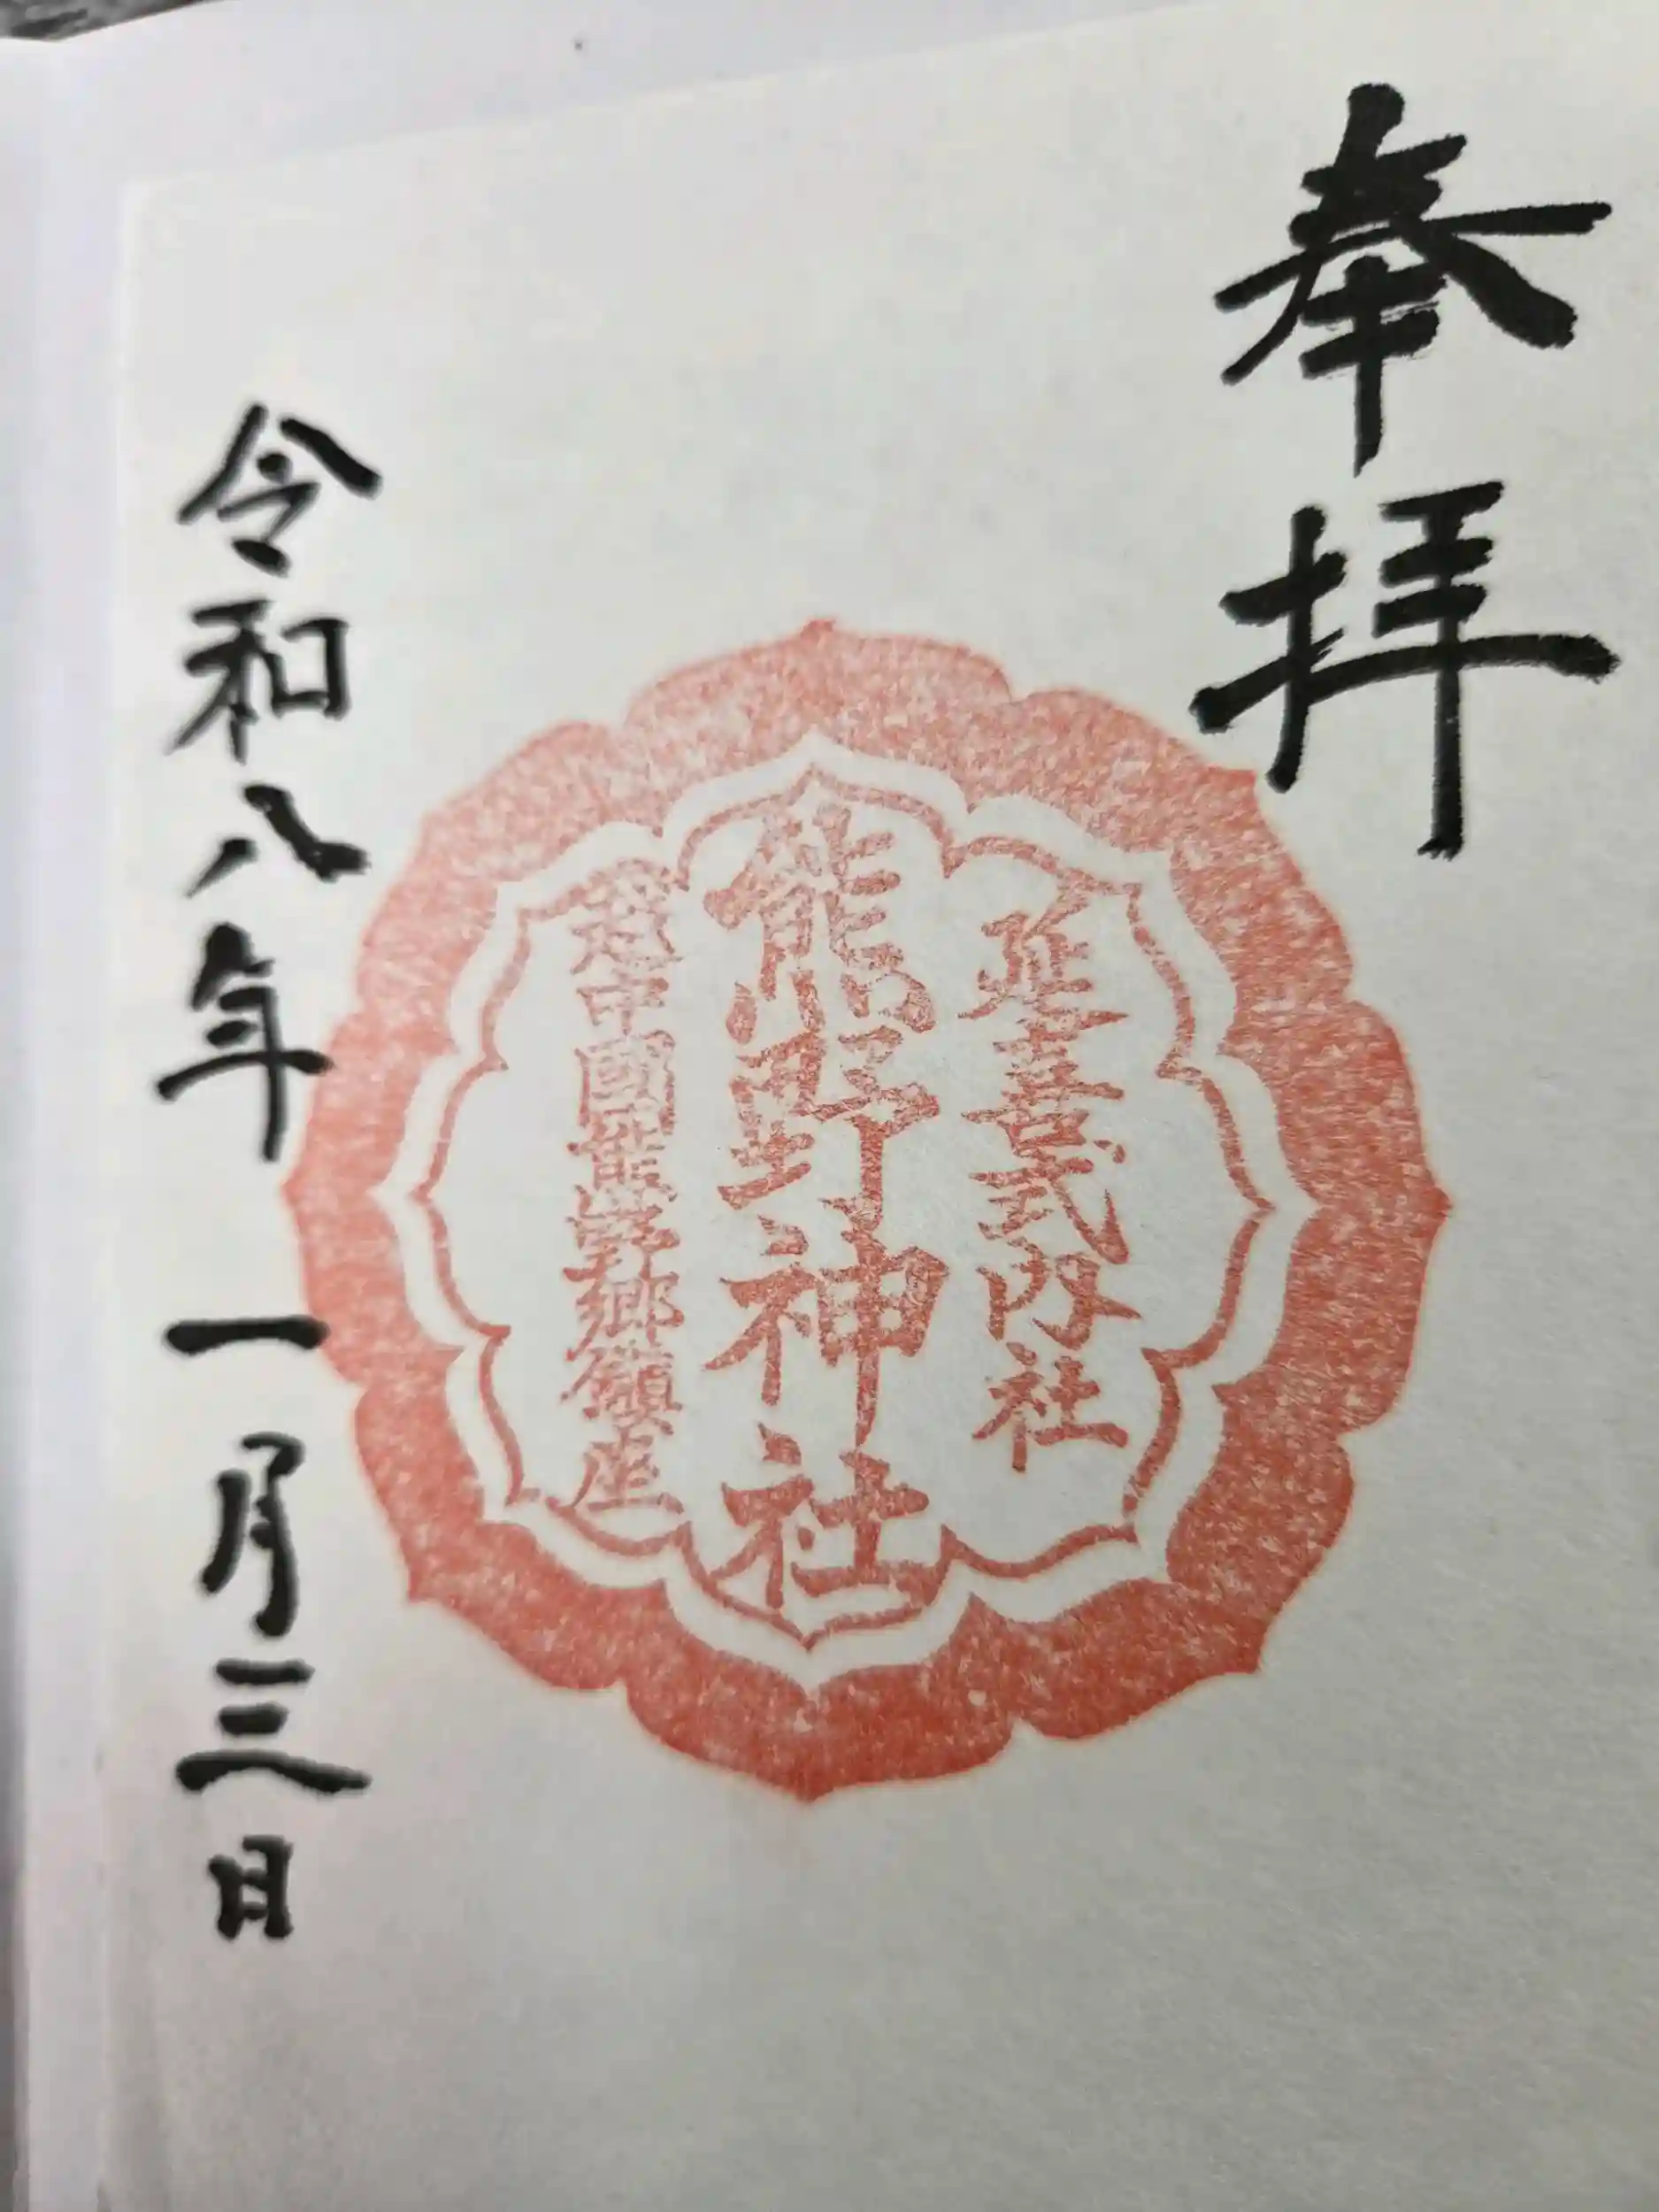 奉拝
延喜式内社
熊野神社
越中國熊野郷鎮座
令和八年一月三日